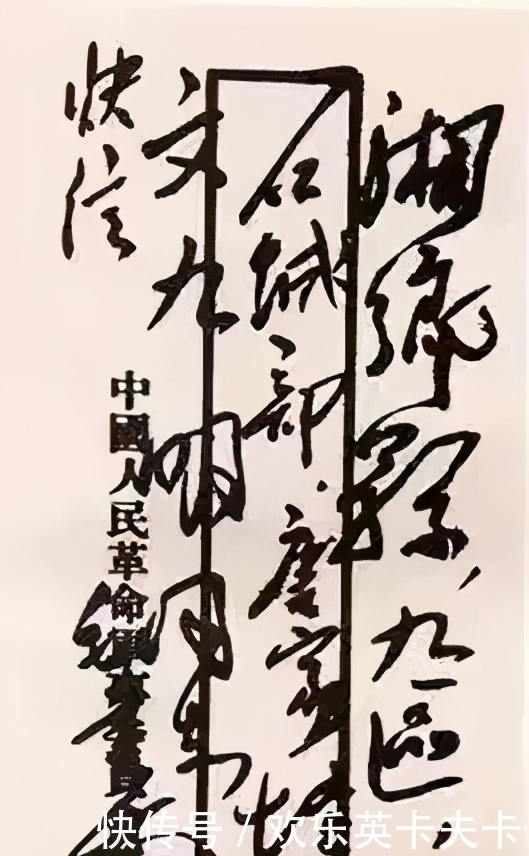 湘鄉縣,九區,
石城部.唐家
文九明同志
快信
中國人民革命軍事委員
快传号 / 欢乐英卡夫卡